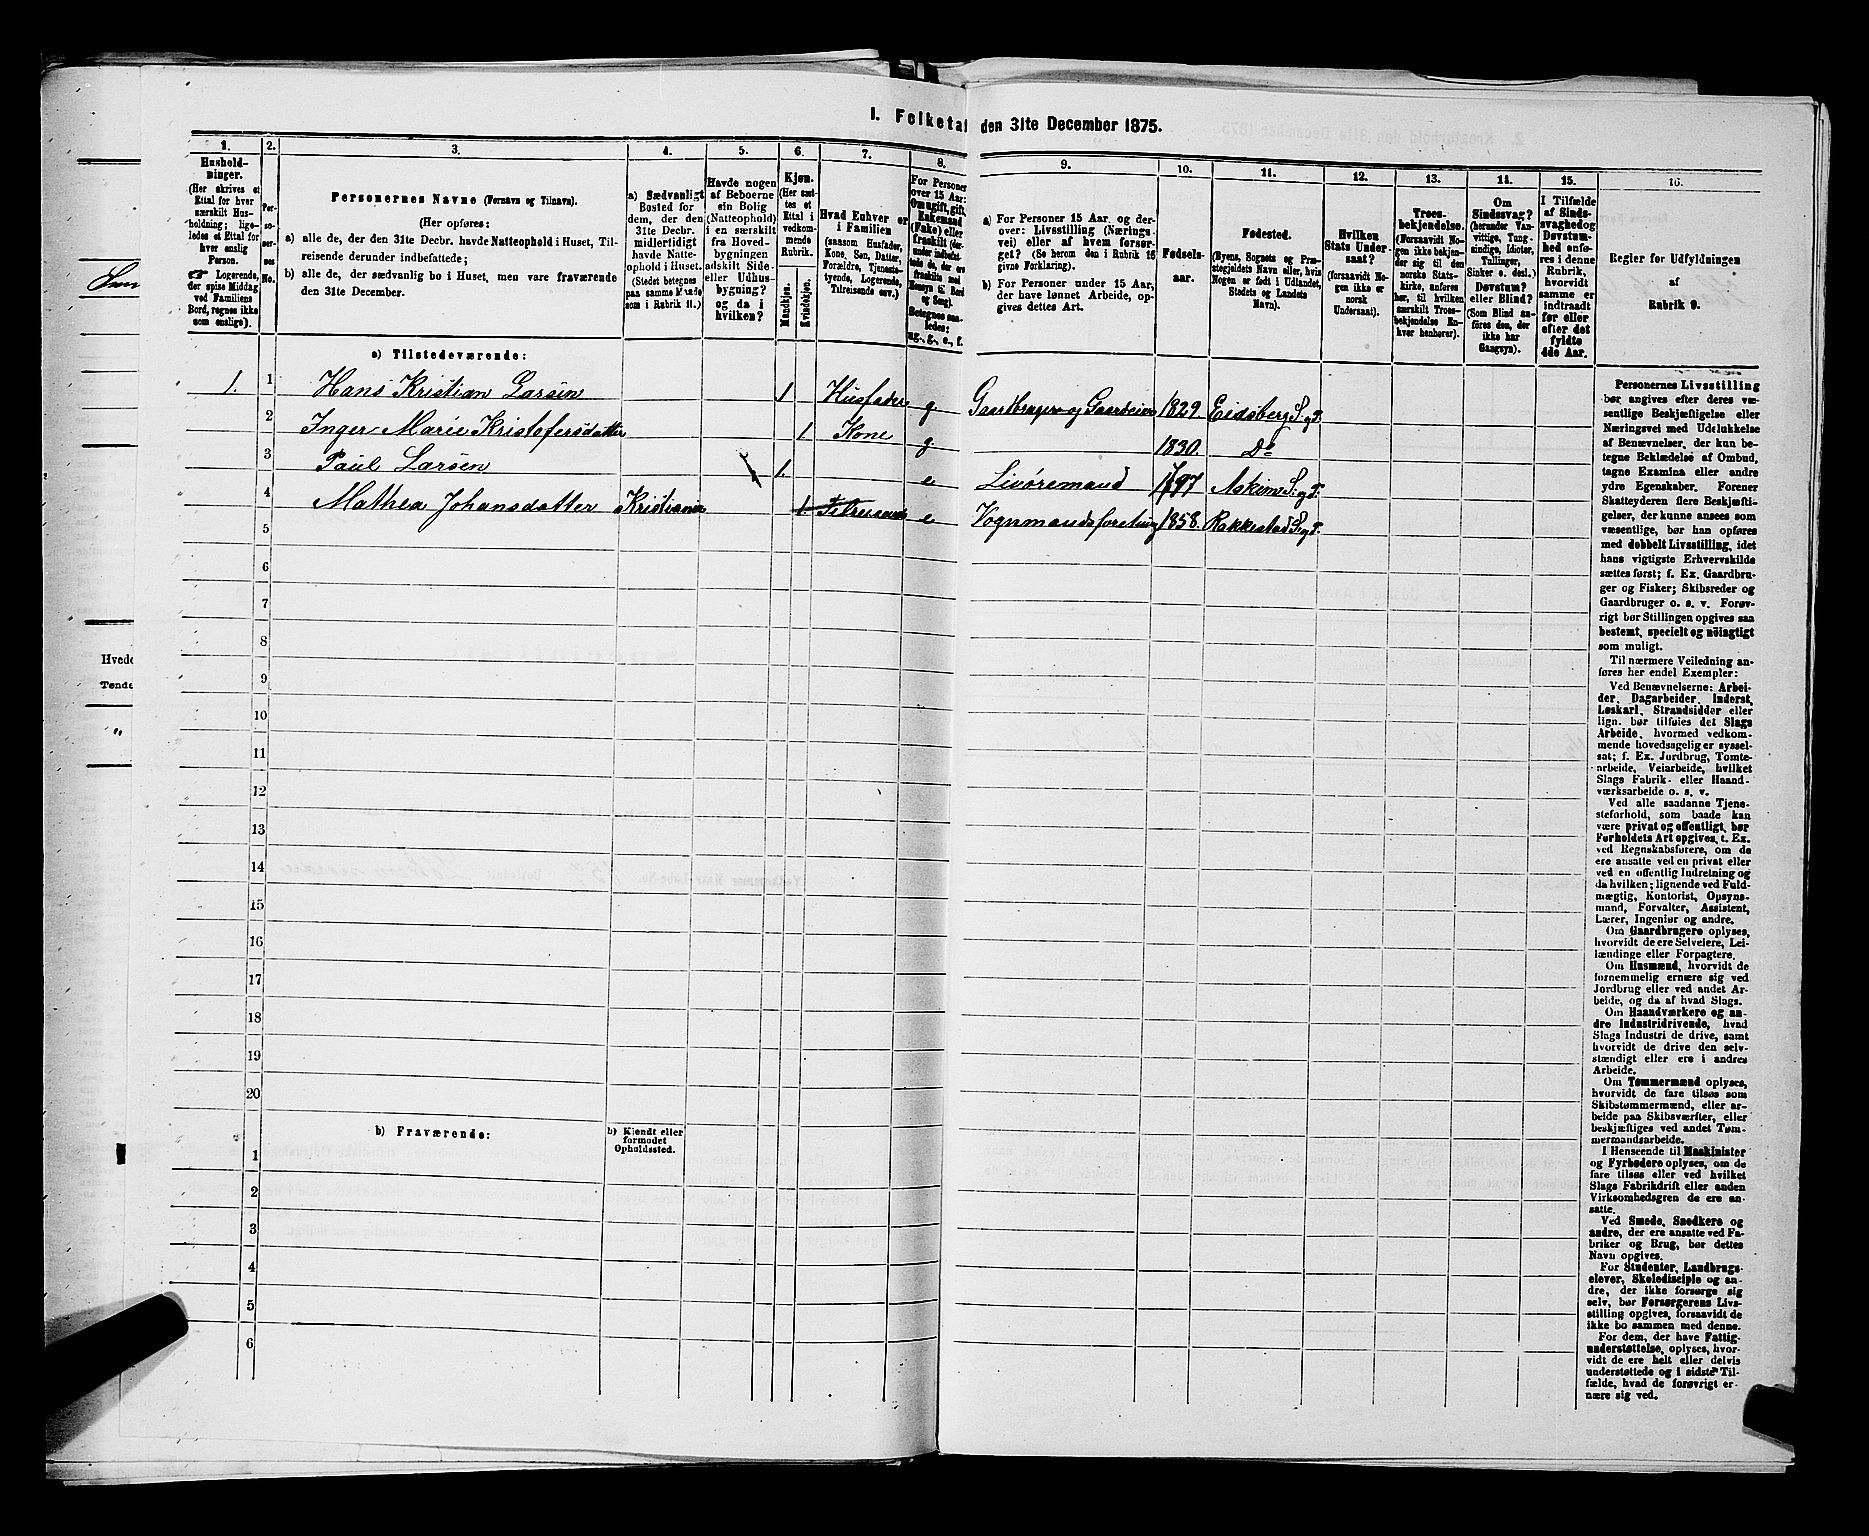 I. Folketal den 31te December 1875.
1.
2.
3.
4.
5.
6.
7.
8.
9.
10.
11.
12.
13.
14.
15.
16.
Hushold-
ninger.
(Her skrives et
Ettal for hver
særskilt Hus-
holdning; lige-
ledes et Ettal for
hver enslig
Person.
Logerende,
der spise Middag
ved Familiens
Bord, regnes ikke
som enslige).
Per-
so-
ner-
nes
No.
Personernes Navne (Fornavn og Tilnavn).
(Her opføres:
a) alle de, der den 31te Decbr. havde Natteophold i Huset, Til-
reisende derunder indbefattede;
b) alle de, der sædvanlig bo i Huset, men vare fraværende
den 31te December.
a) Sædvanligt
Bosted for
dem, der den
31te Decbr.
midlertidigt
havde Natte-
ophold i Huset.
(Stedet betegnes
paa samme Maade
som i Rubrik 11.)
Havde nogen
af Beboerne
sin Bolig
(Natteophold)
i en særskilt
fra Hoved-
bygningen
adskilt Side-
eller Udhus-
bygning?
og da i
hvilken?
Kjøn.
(Her sæt-
tes et
Ettal i
vedkom-
mende
Rubrik.
Mandkjøn.
Kvindekjøn.
Hvad Enhver er
i Familien
(saasom Husfader,
Kone, Søn, Datter,
Forældre, Tjeneste-
tyende, Logerende,
Tilreisende osv.)
For Personer
over 15 Aar:
Om ugift, gift,
Enkemand
(Enke) eller
fraskilt (der-
under indbefat-
tede de, der ere
fraskilte med
Hensyn til Bord
og Seng).
Betegnes saa-
ledes:
ug., g., e., f.
a) For Personer 15 Aar. og der-
over: Livsstilling (Nærings-
vei) eller af hvem forsør-
get? (Se herom den i Rubrik 16
givne Forklaring).
b) For Personer under 15 Aar,
der have lønnet Arbeide, op-
gives dettes Art.
Fødsels-
aar.
Fødested.
(Byens, Sognets og Præ-
stegjeldets Navn eller, hvis
Nogen er født i Udlandet,
Stedets og Landets
Navn).
Hvilken
Stats Under-
saat?
(forsaavidt No-
gen ikke er
norsk
Undersaat).
Troes-
bekjendelse.
(Forsaavidt No-
gen ikke bekjen-
der sig til den
norske Stats-
kirke, anføres
her, til hvilken
særskilt Troes-
bekjendelse En-
hver henhører).
Om
Sindssvag?
(herunder Van-
vittige, Tung-
sindige, Idioter,
Tullinger,
Sinker o. desl.)
Døvstum?
eller Blind?
(Som Blind an-
føres den, der
ikke har
Gangsyn).
I Tilfælde
af Sinds-
svaghed og
Døvstum-
hed anfø-
res i denne
Rubrik,
hvorvidt
samme er
indtraadt
før eller
efter det
fyldte
4de Aar.
Regler for Udfyldningen
af
Rubrik 9.
a) Tilstedeværende:
1. 1 Hans Kristian Larsen 1 Husfader g Gaardbruger og Gaardeier 1829 Eidsberg S. g P.
2 Inger Marie Kristofersdatter 1. Kone g 1830. Do
3 Paul Larsen 1. e Livøremand 1797 Askim S. g P.
4 Mathea Johansdatter Kristiania 1. e 1858. Rakkestad S. g P.
5
6
7
8
9
10
11
12
13
14
15
16
17
18
19
20
b) Fraværende:
b) Kjendt eller
formodet
Opholdssted.
1
2
3
4
5
6
Personernes Livsstilling
bør angives efter deres væ-
sentlige Beskjæftigelse eller
Næringsvei med Udelukkelse
af Benævnelser, der kun be-
tegne Beklædelse af Ombud,
tagne Examina eller andre
ydre Egenskaber. Forener
Skatteyderen flere Beskjæfti-
gelser, der kunne ansees som
væsentlige, bør han opføres
med dobbelt Livsstilling, idet
hans vigtigste Erhvervskilde
sættes først; f. Ex. Gaardbru-
ger og Fisker; Skibsreder og
Gaardbruger o. s. v. Forøv-
rigt bør Stillingen opgives saa
bestemt, specielt og nöiagtigt
som muligt.
Til nærmere Veiledning an-
føres her endel Exempler:
Ved Benævnelserne: Arbei-
der, Dagarbeider, Inderst,
Løskarl, Strandsidder eller
lign. bør tilføies det Slags
Arbeide, hvormed vedkom-
mende hovedsagelig er syssel-
sat; f. Ex. Jordbrug, Tomte-
arbeide, Veiarbeide, hvilket
Slags Fabrik- eller Haand-
værksarbeide o. s. v.
Ved alle saadanne Tjene-
steforhold, som baade kan
være privat og offentligt, bør
Forholdets Art opgives, t. Ex.
ved Regnskabsførere, om de
ere ansatte ved en privat eller
ved en offentlig Indretning og
da hvilken; lignende ved Fuld-
mægtig, Kontorist, Opsyns-
mand, Forvalter, Assistent,
Lærer, Ingeniør og andre.
Om Gaardbrugere oplyses,
hvorvidt de ere Selveiere, Lei-
lændinge eller Forpagtere.
Om Husmænd, hvorvidt de
fornemmelig ernære sig ved
Jordbrug eller ved andet Ar-
beide, og da af hvad Slags.
Om Haandværkere og an-
dre Industridrivende, hvad
Slags Industri de drive, samt
hvorvidt de drive den selv-
stændigt eller ere i andres
Arbeide.
Om Tømmermænd oplyses,
hvorvidt de fare tilsøs som
Skibstømmermænd, eller ar-
beide paa Skibsværfter, eller
beskjæftiges ved andet Tøm-
mermandsarbeide.
I Henseende til Maskinister
og Fyrbødere oplyses, om de
fare tilsøs eller ved hvilket
Slags Fabrikdrift eller anden
Virksomhedsgren de ere an-
satte.
Ved Smede, Snedkere og
andre, der ere ansatte ved Fa-
briker og Brug, bør dettes
Navn opgives.
For Studenter, Landbrugs-
elever, Skoledisciple og an-
dre, der ikke forsørge sig
selv, bør Forsørgerens Livs-
stilling opgives, forsaavidt de
ikke bo sammen med denne.
For dem, der have Fattig-
understøttelse, oplyses, hvor-
vidt de ere helt eller delvis
understøttede og i sidste Til-
fælde, hvad de forøvrigt er-
nære sig ved.
Hvede
Tønde